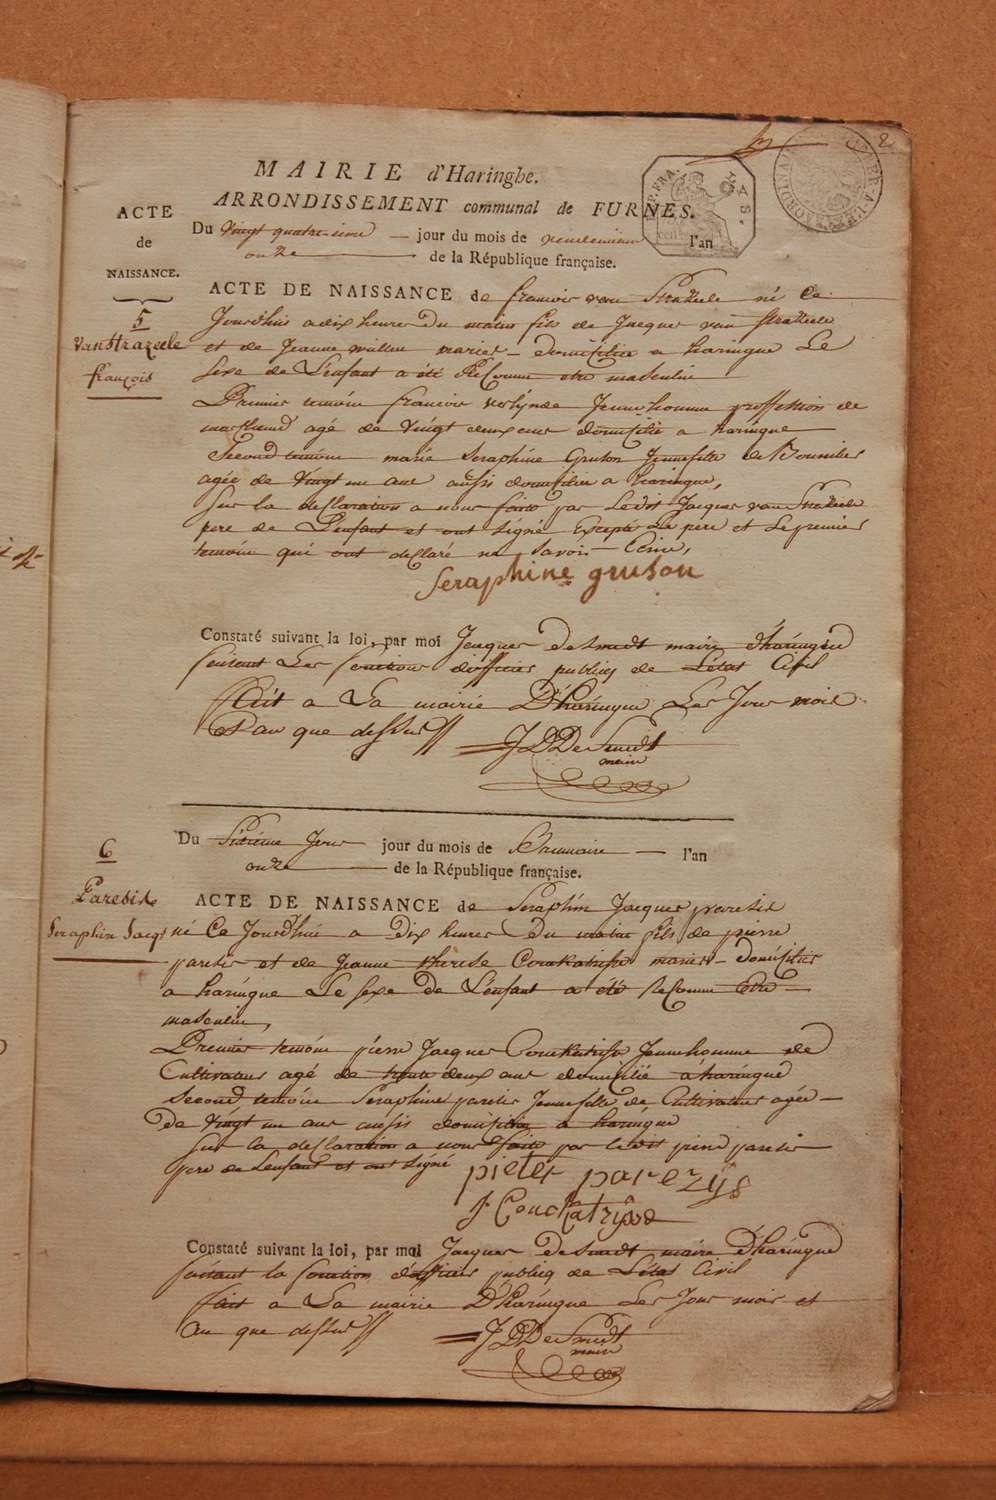 2
MAIRIE d'Haringhe.
ARRONDISSEMENT communal de FURNES.
ACTE
de
NAISSANCE.
Du Vingt quatrieme — jour du mois de vendemiair l'an
onze — de la République française.
5
Van Strazeele
françois
ACTE DE NAISSANCE de francois van Strazeele né Ce
Jourdhui a dix heures du matin fils de Jacques van Strazeele
et de Jeanne willen mariés – domicilie a haringue Le
sexe de L'enfant a été Reconnu etre masculin
Premier temoin francois Jeune homme proffession de
marchand agé de Vingt deux ans domicilié a haringue
Second temoin marie Seraphine Gruson Jeune fille de
agée de Vingt un ans aussi domicilies a haringue,
Sur la desclaration a nous faite par Ledit Jacques van Strazeele
pere de L'enfant et ont signé Excepté Le pere et Le premier
temoin qui ont desclaré ne Savoir Ecrire,
seraphine gruson
Constaté suivant la loi, par moi Jacques Desmedt maire d'haringue
faisant Les fonctions d'officier publiq de L'état Civil
fait a La mairie D'haringue Les Jour mois
et an que dessus //
J D De Smedt
maire
Du Sixieme Jour jour du mois de Brumaire — l'an
onze — de la République française.
6
Paresis
Seraphin Jacqs
ACTE DE NAISSANCE de Seraphin Jacques paresis
né Ce Jourdhui a Dix heures Du matin fils de pierre
paresis et de Jeanne therese mariés – domicilies
a haringue Le sexe de L'enfant a été Reconnu Etre –
masculin,
Premier temoin pierre Jacques Jeune homme de
Cultivateur agé de trente deux ans domicilié a haringue
Second temoin Seraphine paresis Jeune fille de Cultivateur agée –
de Vingt un ans aussi domicilies a haringue
Sur la desclaration a nous faite par ledit pierre paresis
pere de L'enfant et ont signé
pieter parezijs
Constaté suivant la loi, par moi Jacques Desmedt maire D'haringue
faisant la fonction d'officier publiq de L'état Civil
fait a La mairie D'haringue Les Jour mois et
an que dessus //
J D De Smedt
maire